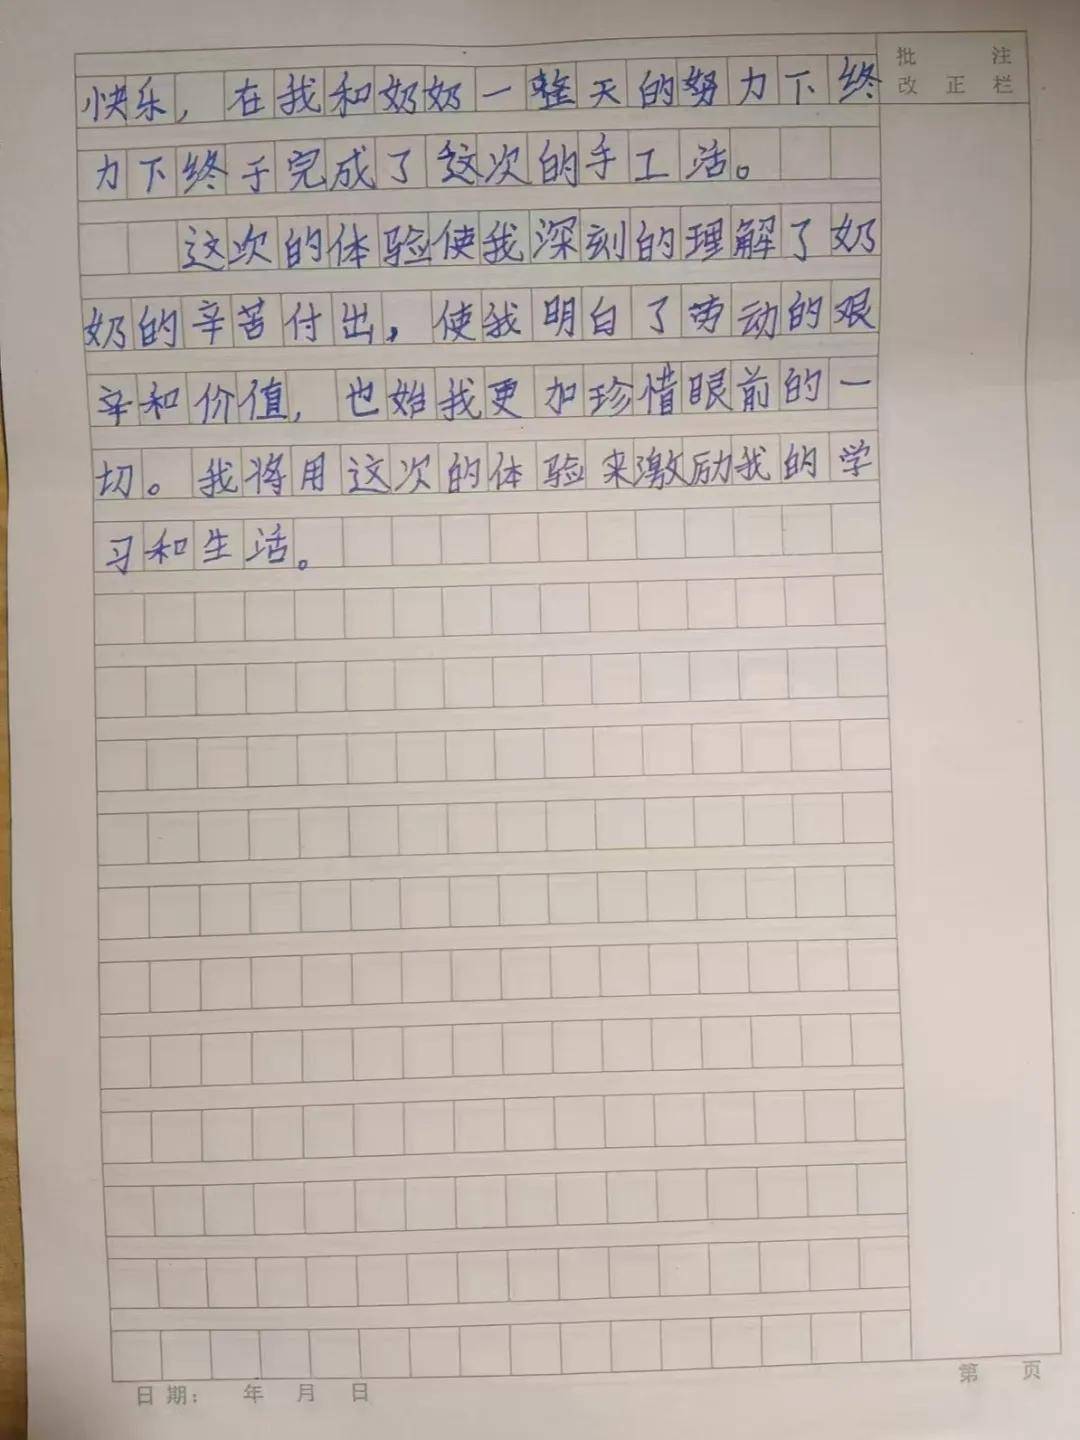 批 注
改 正 栏
快乐，在我和奶奶一整天的努力下终
力下终于完成了这次的手工活。
这次的体验使我深刻的理解了奶
奶的辛苦付出，使我明白了劳动的艰
辛和价值，也始我更加珍惜眼前的一
切。我将用这次的体验来激励我的学
习和生活。
日期： 年 月 日
第 页